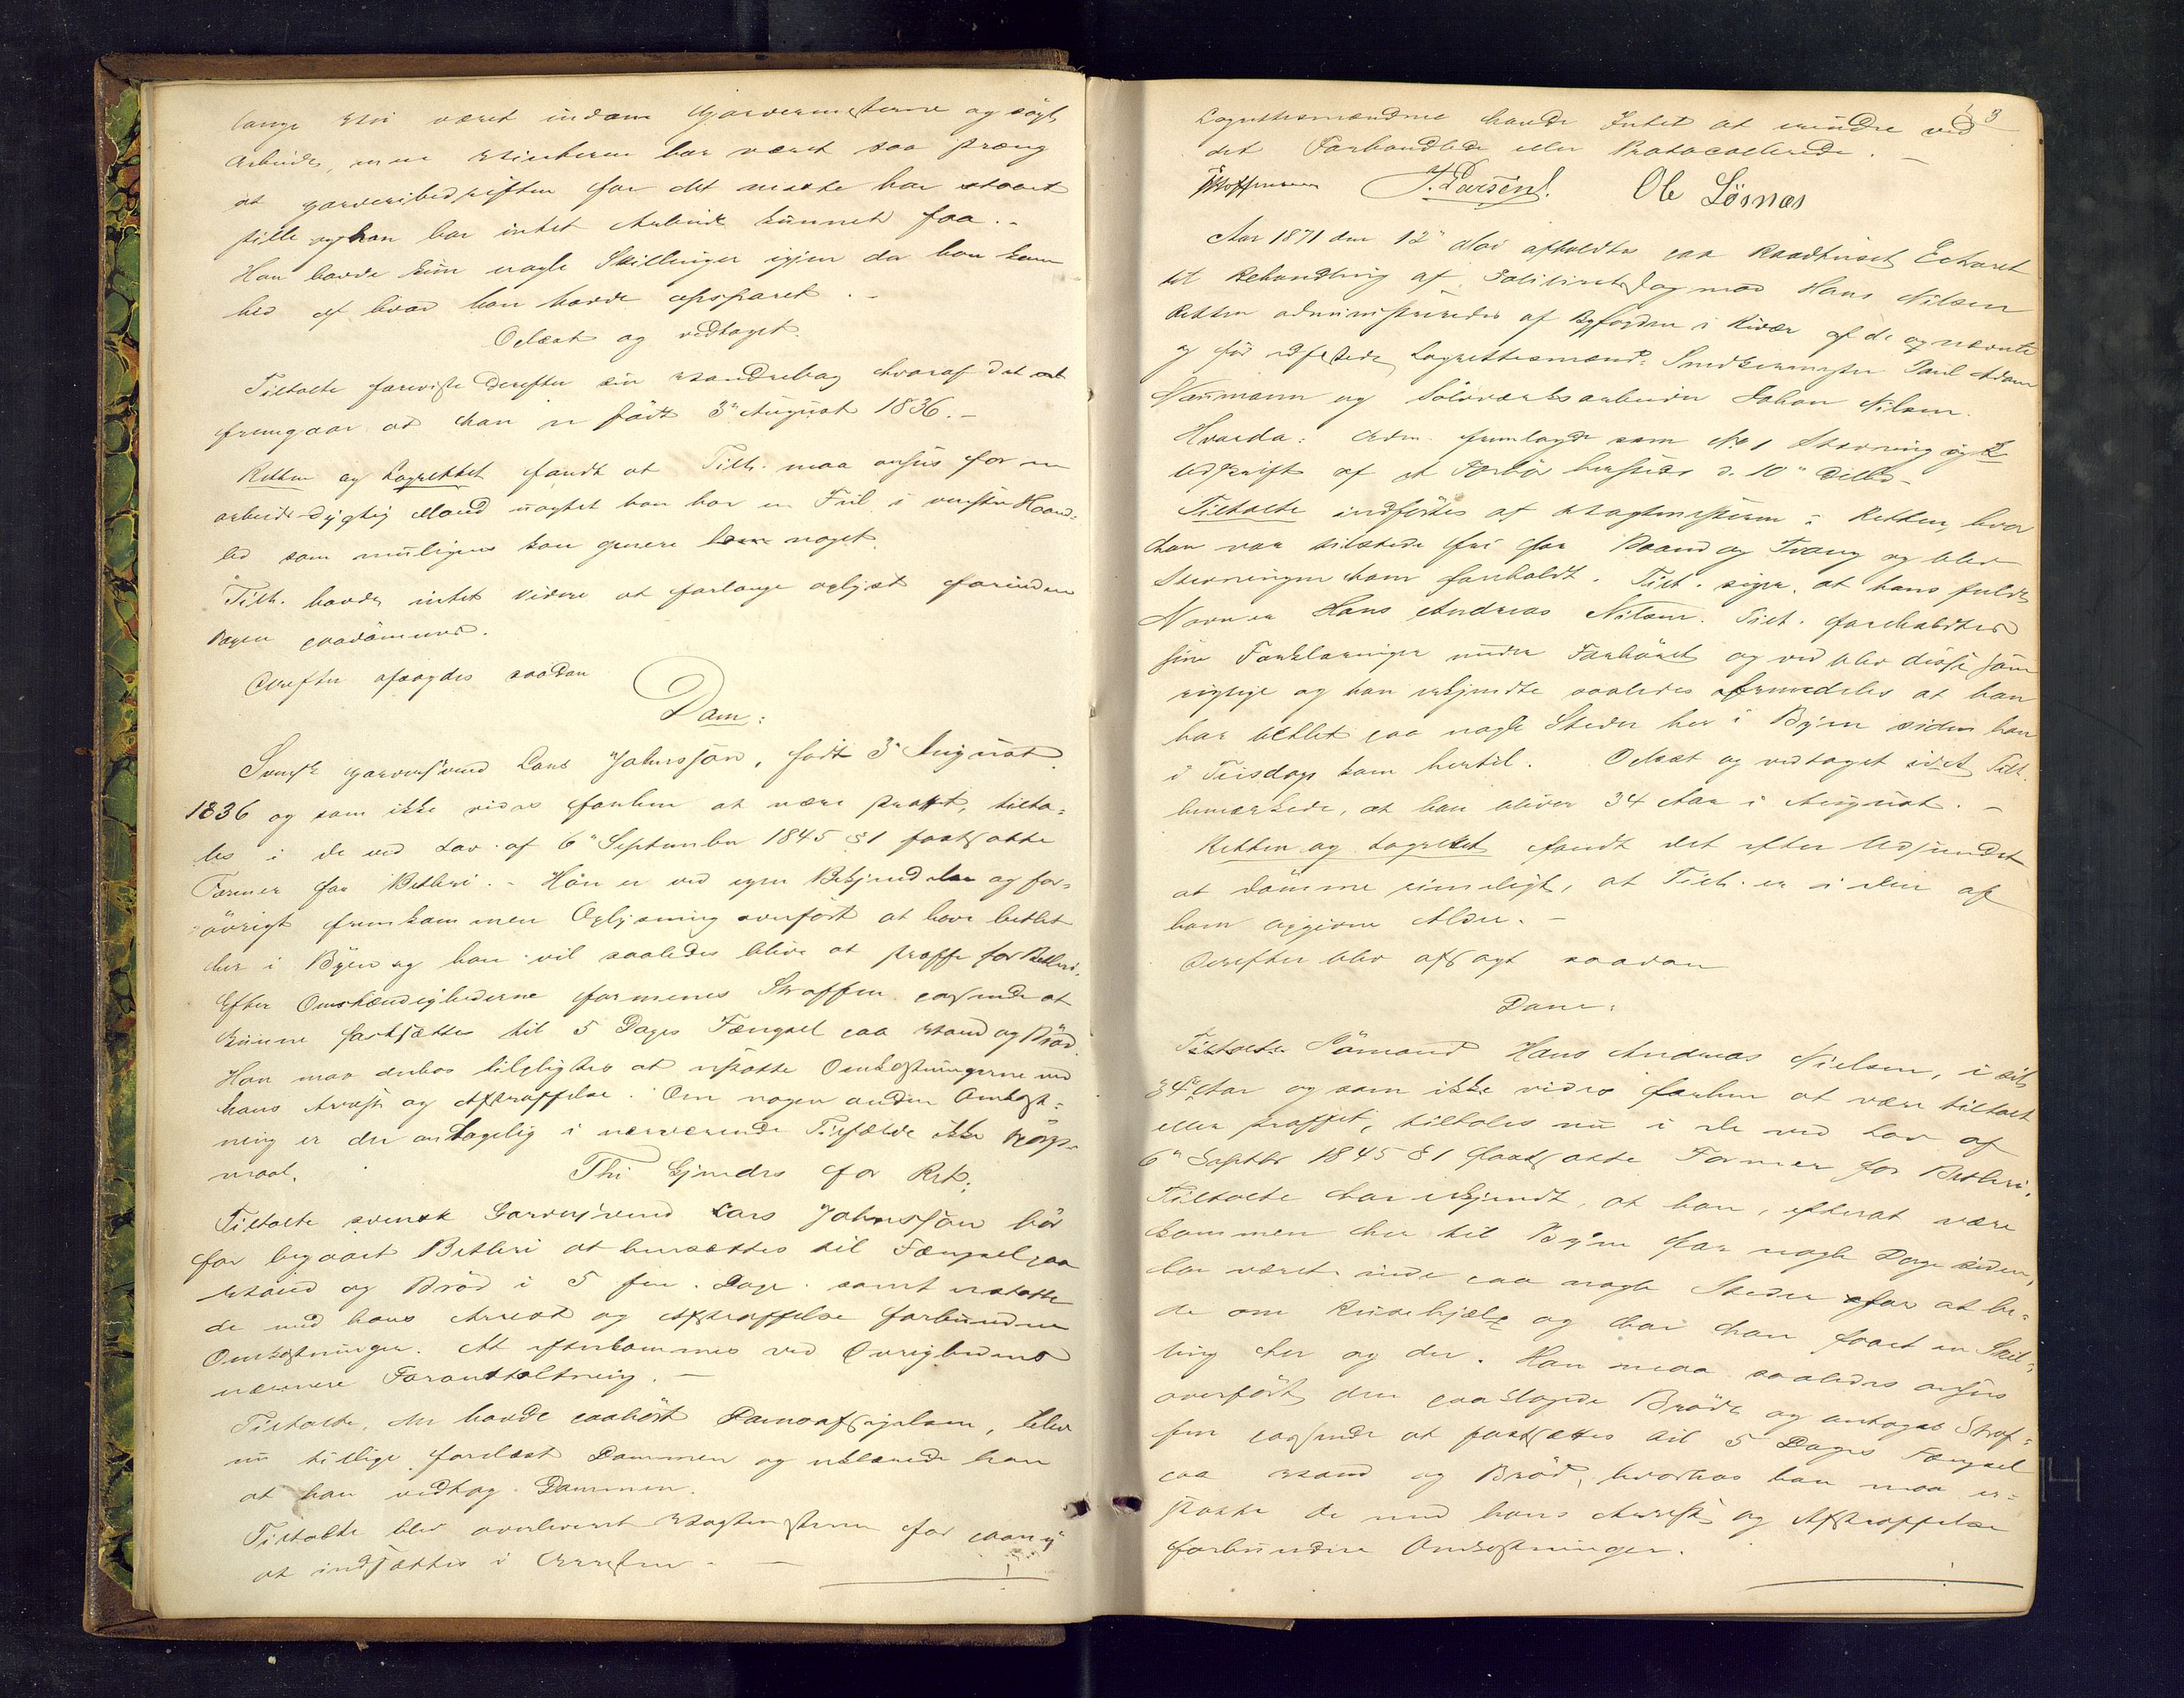 lange Vei været indom Garvermesterne og søgt
Arbeide, men Vinteren har været saa stræng
at garveribedriften for det meste har staaet
stille og han har intet Arbeide kunnet faa. -
Han havde kun nogle Skillinger igjen da han kom
hid af hvad han havde opsparet. -
Oplæst og vedtaget.
Tiltalte foreviste derefter sin Vandrebog hvoraf det
fremgaar at han er født 3die August 1836. -
Retten og Lagrettet fandt at Tilt. maa ansees for en
arbeidsdygtig Mand uagtet han har en Feil i venstre Haand-
led som muligens kan genere noget.
Tilt. havde intet videre at forlange oplyst forinden
Sagen paadømmes.
Derefter afsagdes saadan
Dom:
Svensk garversvend Lars Johnsson, født 3die August
1836 og som ikke vides forhen at være straffet, tilta-
les i de ved Lov af 6te September 1845 § 1 fastsatte
Former for Betleri. - Han er ved egen Bekjendelse og for-
øvrigt fremkommen Oplysning overført at have betlet
her i Byen og han vil saaledes blive at straffe for Betleri.
Efter Omstændighederne formenes Straffen passende at
kunne fastsættes til 5 Dages Fængsel paa Vand og Brød.
Han maa derhos tilpligtes at erstatte Omkostningerne ved
hans Arrest og Afstraffelse. Om nogen anden Omkost-
ning er der antagelig i nærværende Tilfælde ikke Spørgs-
maal.
Thi kjendes for Ret:
Tiltalte svensk Garversvend Lars Johnsson bør
for begaaet Betleri at hensættes til Fængsel paa
Vand og Brød i 5 fem Dage samt erstatte
de med hans Arrest og Afstraffelse forbundne
Omkostninger. At efterkommes ved Øvrighedens
nærmere Foranstaltning. -
Tiltalte, der havde paahørt Domsafsigelsen, blev
nu tillige forelæst Dommen og erklærede han
at han vedtog Dommen.
Tiltalte blev overleveret Vagtmesteren for paany
at indsættes i Arresten. -
3
Lagrettesmændene havde Intet at erindre ved
det Forhandlede eller Protocollerede. -
J. Larsen. Ole Løsnæs
Aar 1871 den 12te Mai afholdtes paa Raadhuset Extraret
til Behandling af Politiretssag mod Hans Nilsen
Retten administreredes af Byfogden i Overvær af de opnævnte
og før edfæstede Lagrettesmænd: Snedkermester Paul Adam
Naumann og Sølvværksarbeider Johan Nilsen.
Hvorda: Adm. fremlagde som No 1 Stevning og 2
Udskrift af et Forhør hersteds d. 10de dennes.
Tiltalte indførtes af Vagtmesteren i Retten, hvor
han var tilstede fri for Baand og Tvang og blev
Stevningen ham foreholdt. Tilt. siger, at hans fulde
Navn er Hans Andreas Nilsen. Tilt. foreholdtes
sine Forklaringer under Forhøret og vedblev disse som
rigtige og han erkjendte saaledes fremdeles at han
har betlet paa nogle Steder her i Byen siden han
i Tirsdags kom hertil. Oplæst og vedtaget idet Tilt.
bemærkede, at han bliver 34 Aar i August. -
Retten og Lagrettet fandt det efter Udseendet
at dømme rimeligt, at Tilt. er i den af
ham opgivne Alder. -
Derefter blev afsagt saadan
Dom:
Sømand Hans Andreas Nielsen, i sit
34te Aar og som ikke vides forhen at være tiltalt
eller straffet, tiltales nu i de ved Lov af
6te Septbr 1845 § 1 fastsatte Former for Betleri.
Tiltalte har erkjendt, at han, efterat være
kommen her til Byen for nogle Dage siden,
har været inde paa nogle Steder for at be-
de om Reisehjælp og har han faaet en Skil-
ling her og der. Han maa saaledes ansees
overført den paaklagede Brøde og antages Straf-
fen passende at fastsættes til 5 Dages Fængsel
paa Vand og Brød, hvorhos han maa er-
statte de med hans Arrest og Afstraffelse
forbundne Omkostninger.